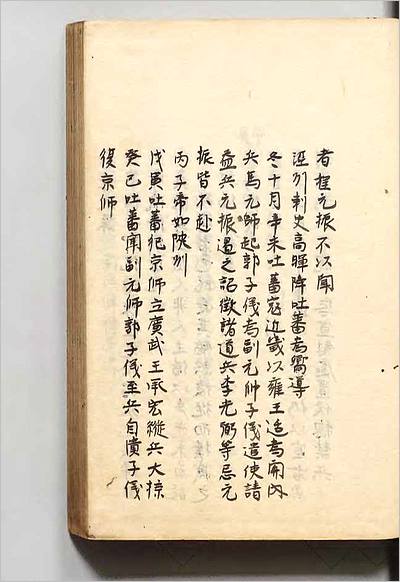 者程元振不以聞
涇州刺史高暉降吐蕃為嚮導
冬十月辛未吐蕃寇近畿以雍王适為關內
兵馬元帥起郭子儀為副元帥子儀遣使請
益兵元振遏之詔徵諸道兵李光弼等忌元
振皆不赴
丙子帝如陝州
戊寅吐蕃犯京師立廣武王承宏縱兵大掠
癸巳吐蕃聞副元帥郭子儀至兵自潰子儀
復京師